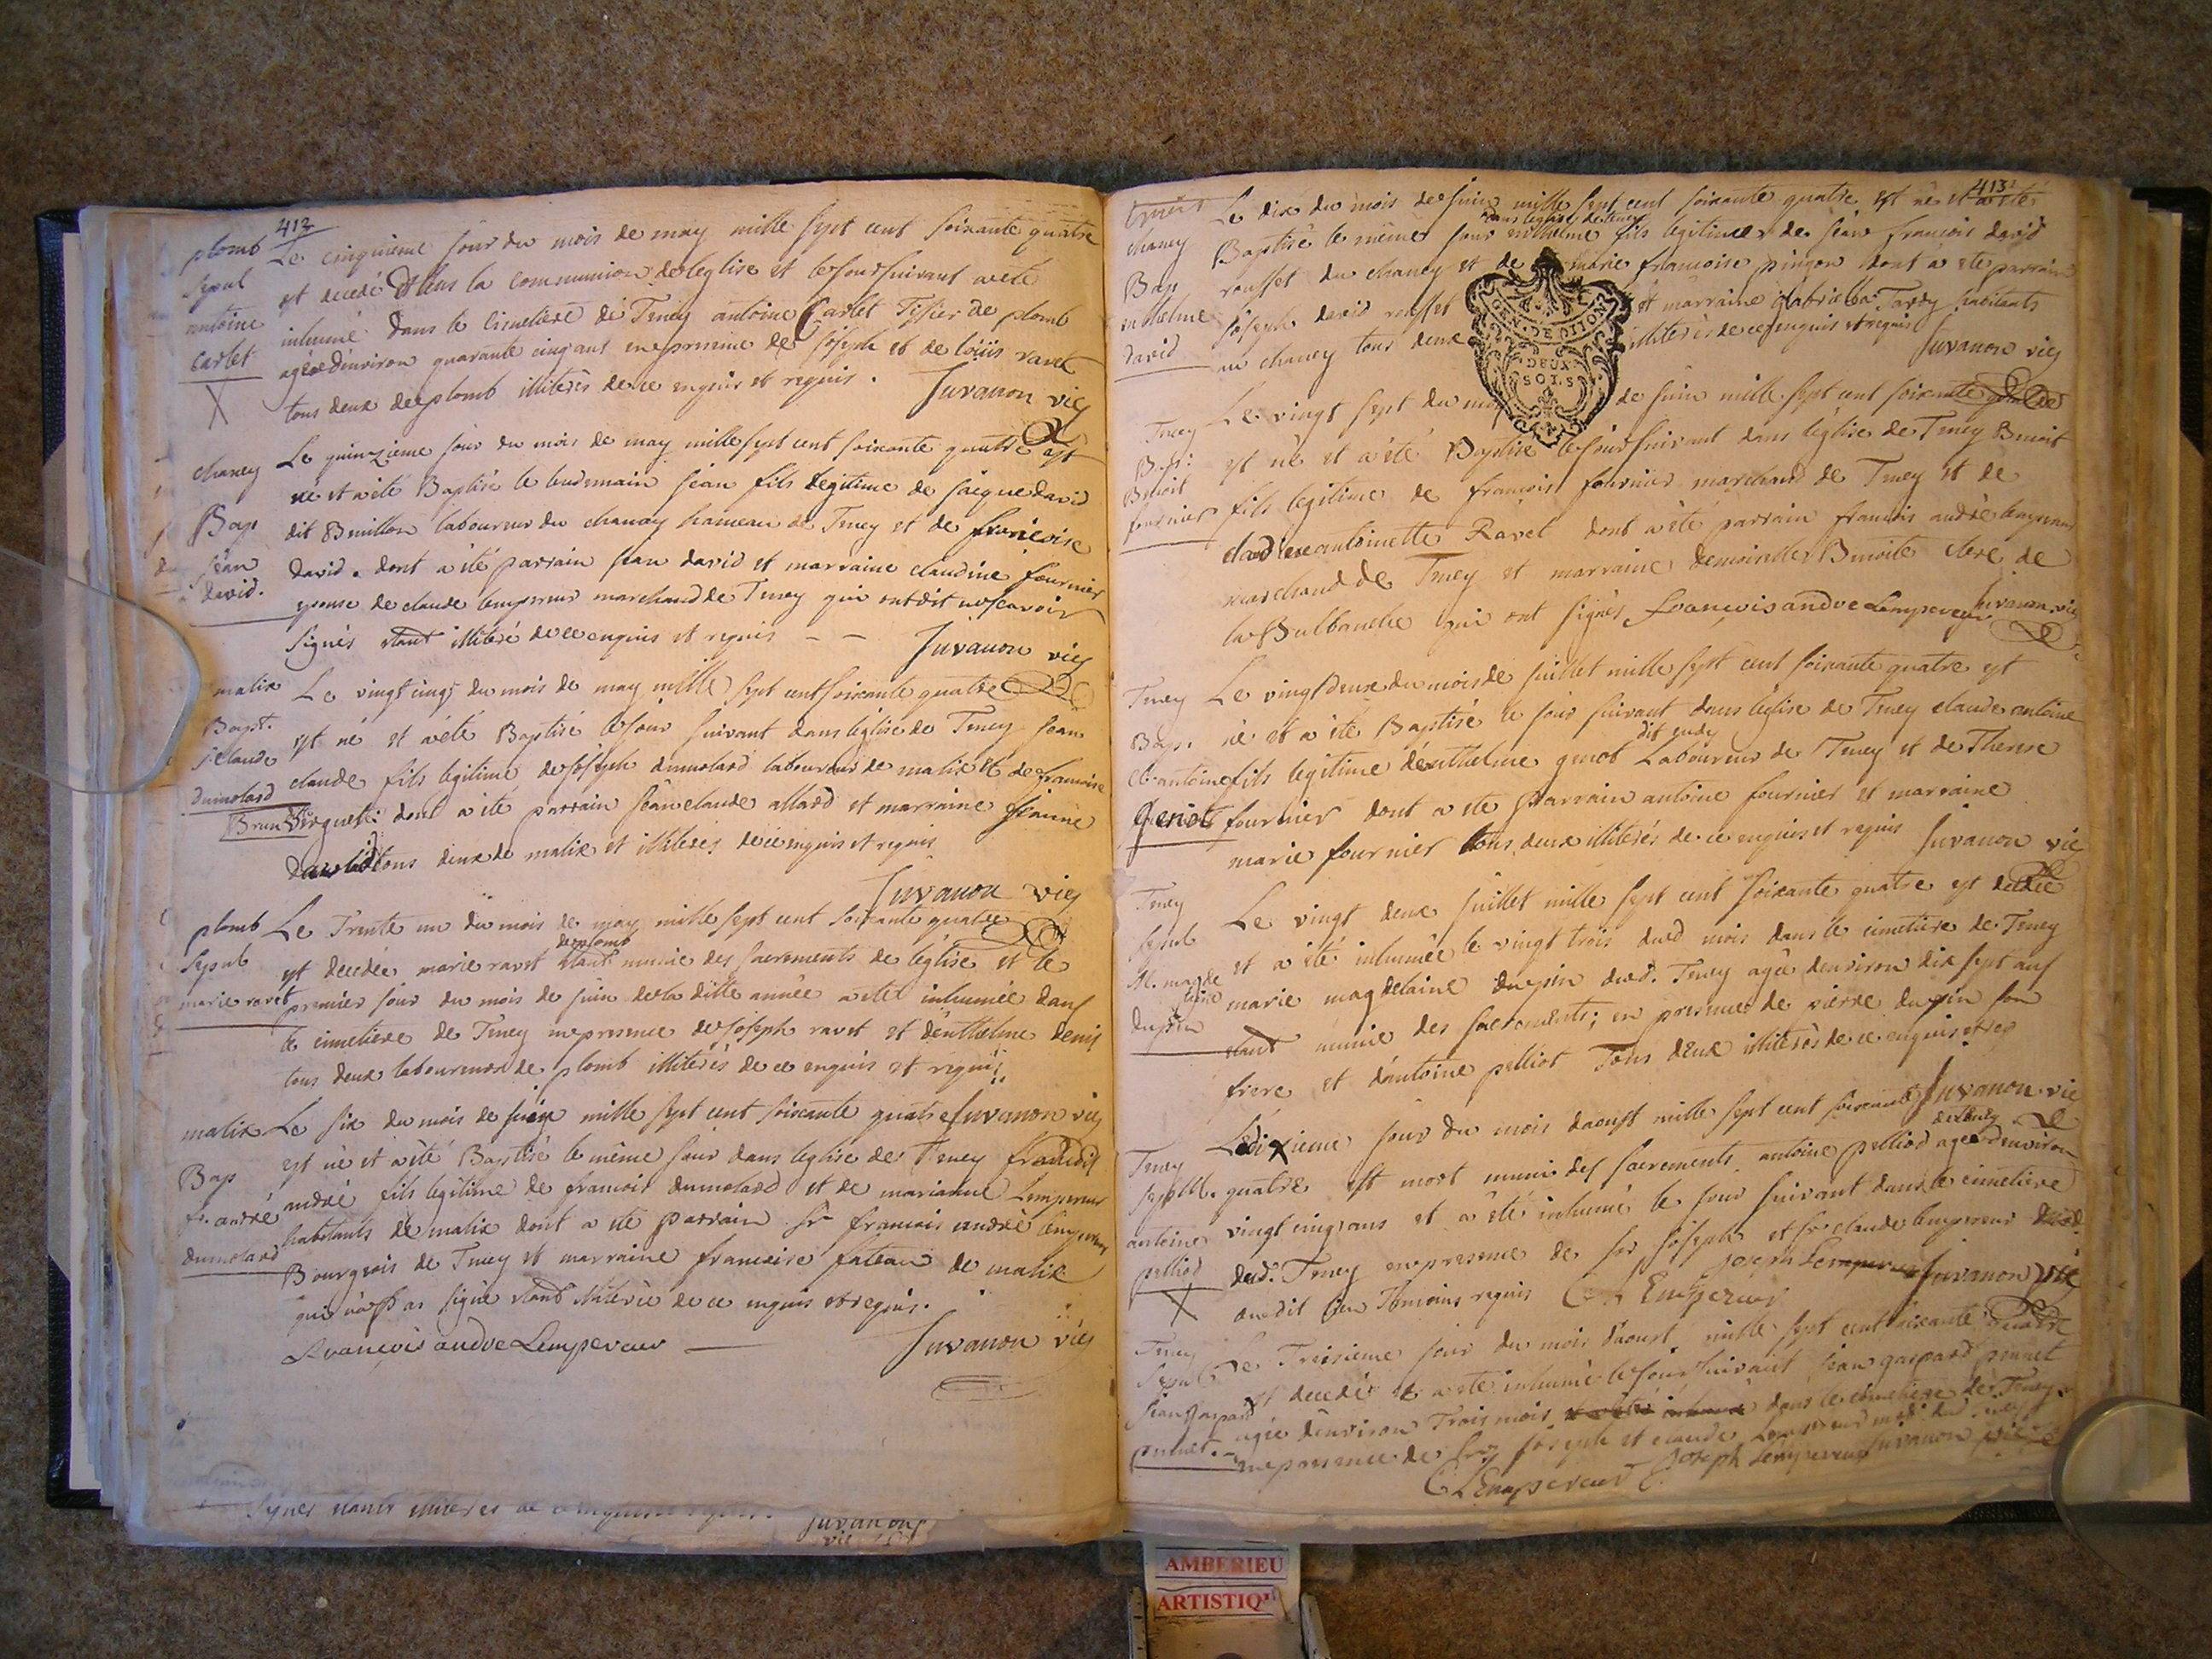 412
plomb
Sepul
antoine
Carlet
Le cinquieme jour du mois de may mille sept cent soixante quatre
est decedé dans la communion de leglise et le jour suivant a eté
inhumé dans le cimetiere de Tenay antoine Carlet Tissier de plomb
agé denviron quarante cinq ans en presence de joseph et de loüis ravet
tous deux de plomb illiterés de ce enquis et requis. Juvanon vic
chaney
Bap
jean
david.
Le quinzieme jour du mois de may mille sept cent soixante quatre est
né et a eté Baptisé le lendemain jean fils legitime de jacque david
dit Bruillon laboureur du chanay hameau de Tenay et de francoise
david. dont a eté parrain jean david et marraine claudine fournier
epouse de claude lempereur marchand de Tenay qui ont dit ne scavoir
signer etant illiteré de ce enquis et requis - - Juvanon vic
malix
Bapt.
j. claude
dumolard
Le vingt cinq du mois de may mille sept cent soixante quatre
est né et a eté Baptisé le jour suivant dans l'eglise de Tenay jean
claude fils legitime de joseph dumolard laboureur de malix et de francoise
Brun dont a eté parrain jean claude allard et marraine jeanne
tous deux de malix et illiterés de ce enquis et requis
Juvanon vic
plomb
Sepul
marie ravet
Le Trente un du mois de may mille sept cent soixante quatre
est decedée marie ravet de plomb etant munie des sacrements de l'église et le
premier jour du mois de juin de la ditte année a eté inhumée dans
le cimetiere de Tenay en presence de joseph ravet et d'enthelme denis
tous deux laboureurs de plomb illiterés de ce enquis et requis
malix
Bap
fr. andré
dumolard
Le six du mois de juin mille sept cent soixante quatre Juvanon vic
est né et a eté Baptisé le même jour dans leglise de Tenay francois
andré fils legitime de francois dumolard et de marianne Lempereur
habitants de malix dont a eté parrain Sr francois andré lempereur
Bourgeois de Tenay et marraine francoise fateau de malix
qui n'a pas signé etant illiterée de ce enquis et requis.
François andre Lempereur — Juvanon vic
signer etants illiterés de ce enquis et requis. Juvanon
vic
413
chaney
Bap
enthelme
david
Le dix du mois de juin mille sept cent soixante quatre est né et a eté
Baptisé le même jour dans leglise de Tenay enthelme fils legitime de jean francois david
rousset du chaney et de marie francoise pingon dont a eté parrain
joseph david rousset et marraine Gabriella Tardy habitants
au chaney tous deux illiterés de ce enquis et requis Juvanon vic
GEN. DE DIJON
DEUX
SOLS
Tenay
Bap:
Benoit
fournier
Le vingt sept du mois de juin mille sept cent soixante quatre
est né et a eté Baptisé le jour suivant dans l'église de Tenay Benoit
fils legitime de francois fournier marchand de Tenay et de
claudine antoinette Ravet dont a eté parrain francois andré lempereur
marchand de Tenay et marraine demoiselle Benoite clere de
la Bulbanche qui ont signés François andre Lempereur Juvanon vic
Tenay
Bap.
Cl. antoine
Genot
Le vingt deux du mois de juillet mille sept cent soixante quatre est
né et a eté Baptisé le jour suivant dans l'église de Tenay claude antoine
fils legitime d'enthelme genot dit Laboureur de Tenay et de Therese
fournier dont a eté parrain antoine fournier et marraine
marie fournier tous deux illiterés de ce enquis et requis Juvanon vic
Tenay
Sepul
M. magde
laine
dupin
Le vingt deux juillet mille sept cent soixante quatre est decedée
et a eté inhumée le vingt trois dud mois dans le cimetiere de Tenay
marie magdelaine dupin dud. Tenay agée denviron dix sept ans
etant munie des sacrements; en presence de pierre dupin son
frere et d'antoine pelliot Tous deux illiterés de ce enquis et req
Tenay
antoine
pelliod
Le dixieme jour du mois daoust mille sept cent soixante Juvanon vic
quatre est mort muni des sacrements antoine pelliod de Tenay agé denviron
vingt cinq ans et a eté inhumé le jour suivant dans le cimetiere
dud. Tenay en presence de Srs joseph et sr claude lempereur
dudit lieu Temoins requis C. L Empereur joseph Lempereur Juvanon vic
Tenay
Sepul
jean gaspard
Le Treisieme jour du mois d'aoust mille sept cent soixante quatre
est decedé et a eté inhumé le jour suivant jean gaspard
agée d'environ Trois mois dans le cimetiere de Tenay
en presence de Srs joseph et claude Lempereur
C LEmpereur joseph Lempereur Juvanon vic
AMBERIEU
ARTISTIQ